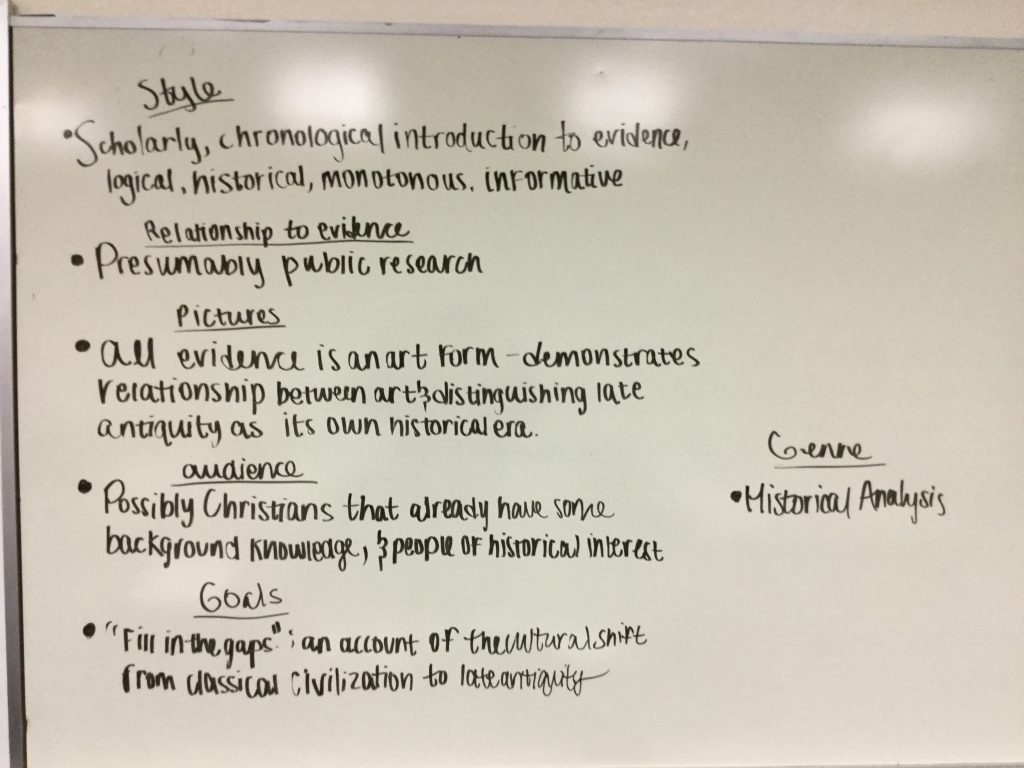 Style
• Scholarly, chronological introduction to evidence,
logical, historical, monotonous, informative
Relationship to evidence
• Presumably public research
Pictures
• all evidence is an art form - demonstrates
relationship between art & distinguishing late
antiquity as its own historical era.
audience
• Possibly Christians that already have some
background knowledge, & people of historical interest
Goals
• "Fill in the gaps"; an account of the cultural shift
from classical civilization to late antiquity
Genre
• Historical Analysis